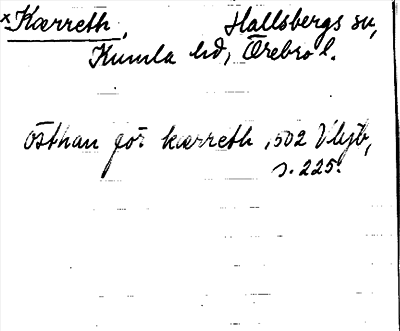 ×Kærreth, Hallsbergs sn,
Kumla hd, Örebro l.
östhan för kærreth 1502 Vkjb,
s. 225.